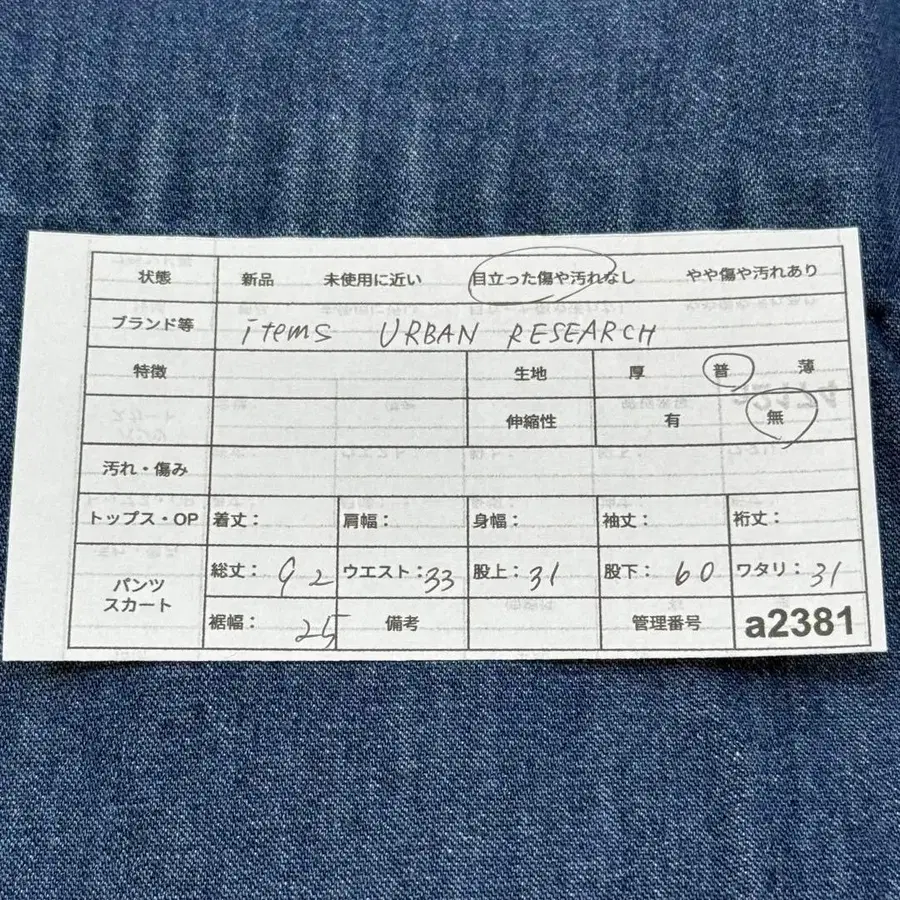 状態 新品 未使用に近い 目立った傷や汚れなし やや傷や汚れあり
ブランド等 items URBAN RESEARCH
特徴 生地 厚 普 薄
伸縮性 有 無
汚れ・傷み
トップス・OP 着丈： 肩幅： 身幅： 袖丈： 裄丈：
パンツ スカート 総丈： 92 ウエスト：33 股上：31 股下：60 ワタリ：31
裾幅： 25 備考 管理番号 a2381